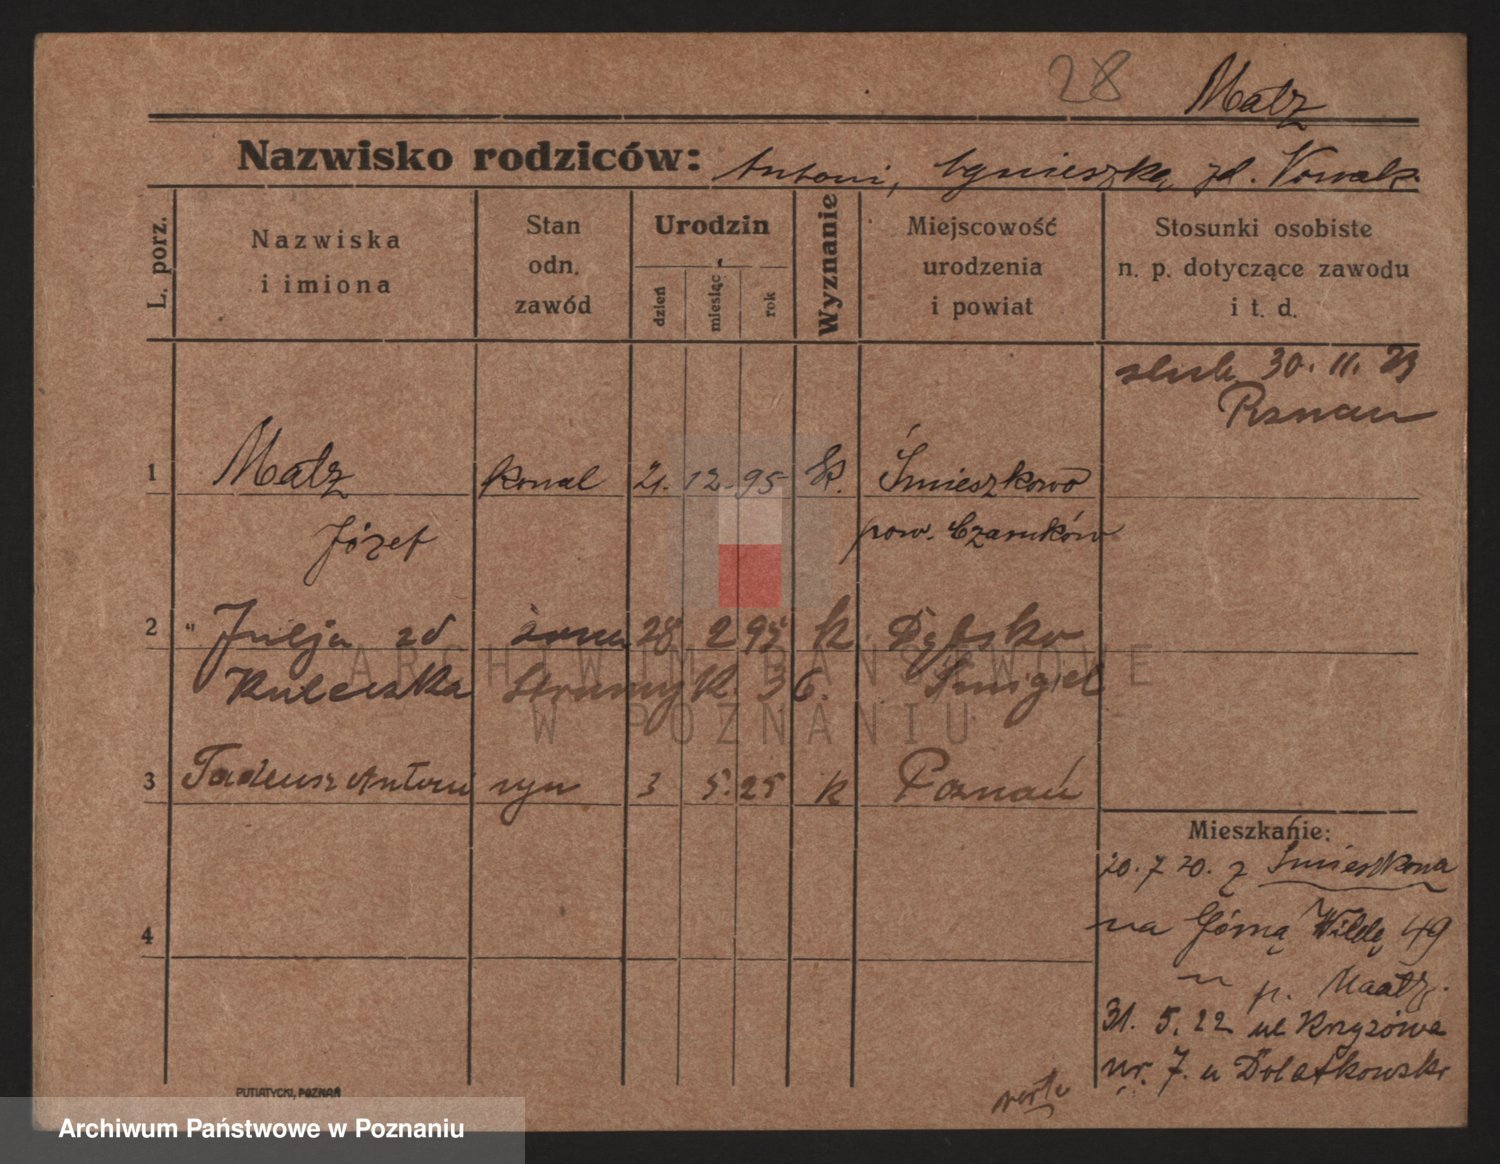 28
Matz
Nazwisko rodziców: Antoni, Agnieszka zd. Nowak.
L. porz.
Nazwiska
i imiona
Stan
odn.
zawód
Urodzin
dzień
miesiąc
rok
Wyznanie
Miejscowość
urodzenia
i powiat
Stosunki osobiste
n. p. dotyczące zawodu
i t. d.
ślub 30. 11. 23
Poznań
1 Matz kowal 21. 12. 95 k. Śmieszkowo
Józef pow. Czarnków
2 " Julja zd żona 28 2 95 k. Dębsko
Kuleczka Strumyk. 36. Śmigiel
3 Tadeusz Antoni syn 3 5. 25 k Poznań
4
Mieszkanie:
20. 7 20. z Śmieszkowa
na Górną Wildę 49
u p. Maatz.
31. 5. 22 ul Krzyżowa
nr. 7. u Dolatkowski
verte
PUTIATYCKI, POZNAŃ
ARCHIWUM PAŃSTWOWE
W POZNANIU
Archiwum Państwowe w Poznaniu